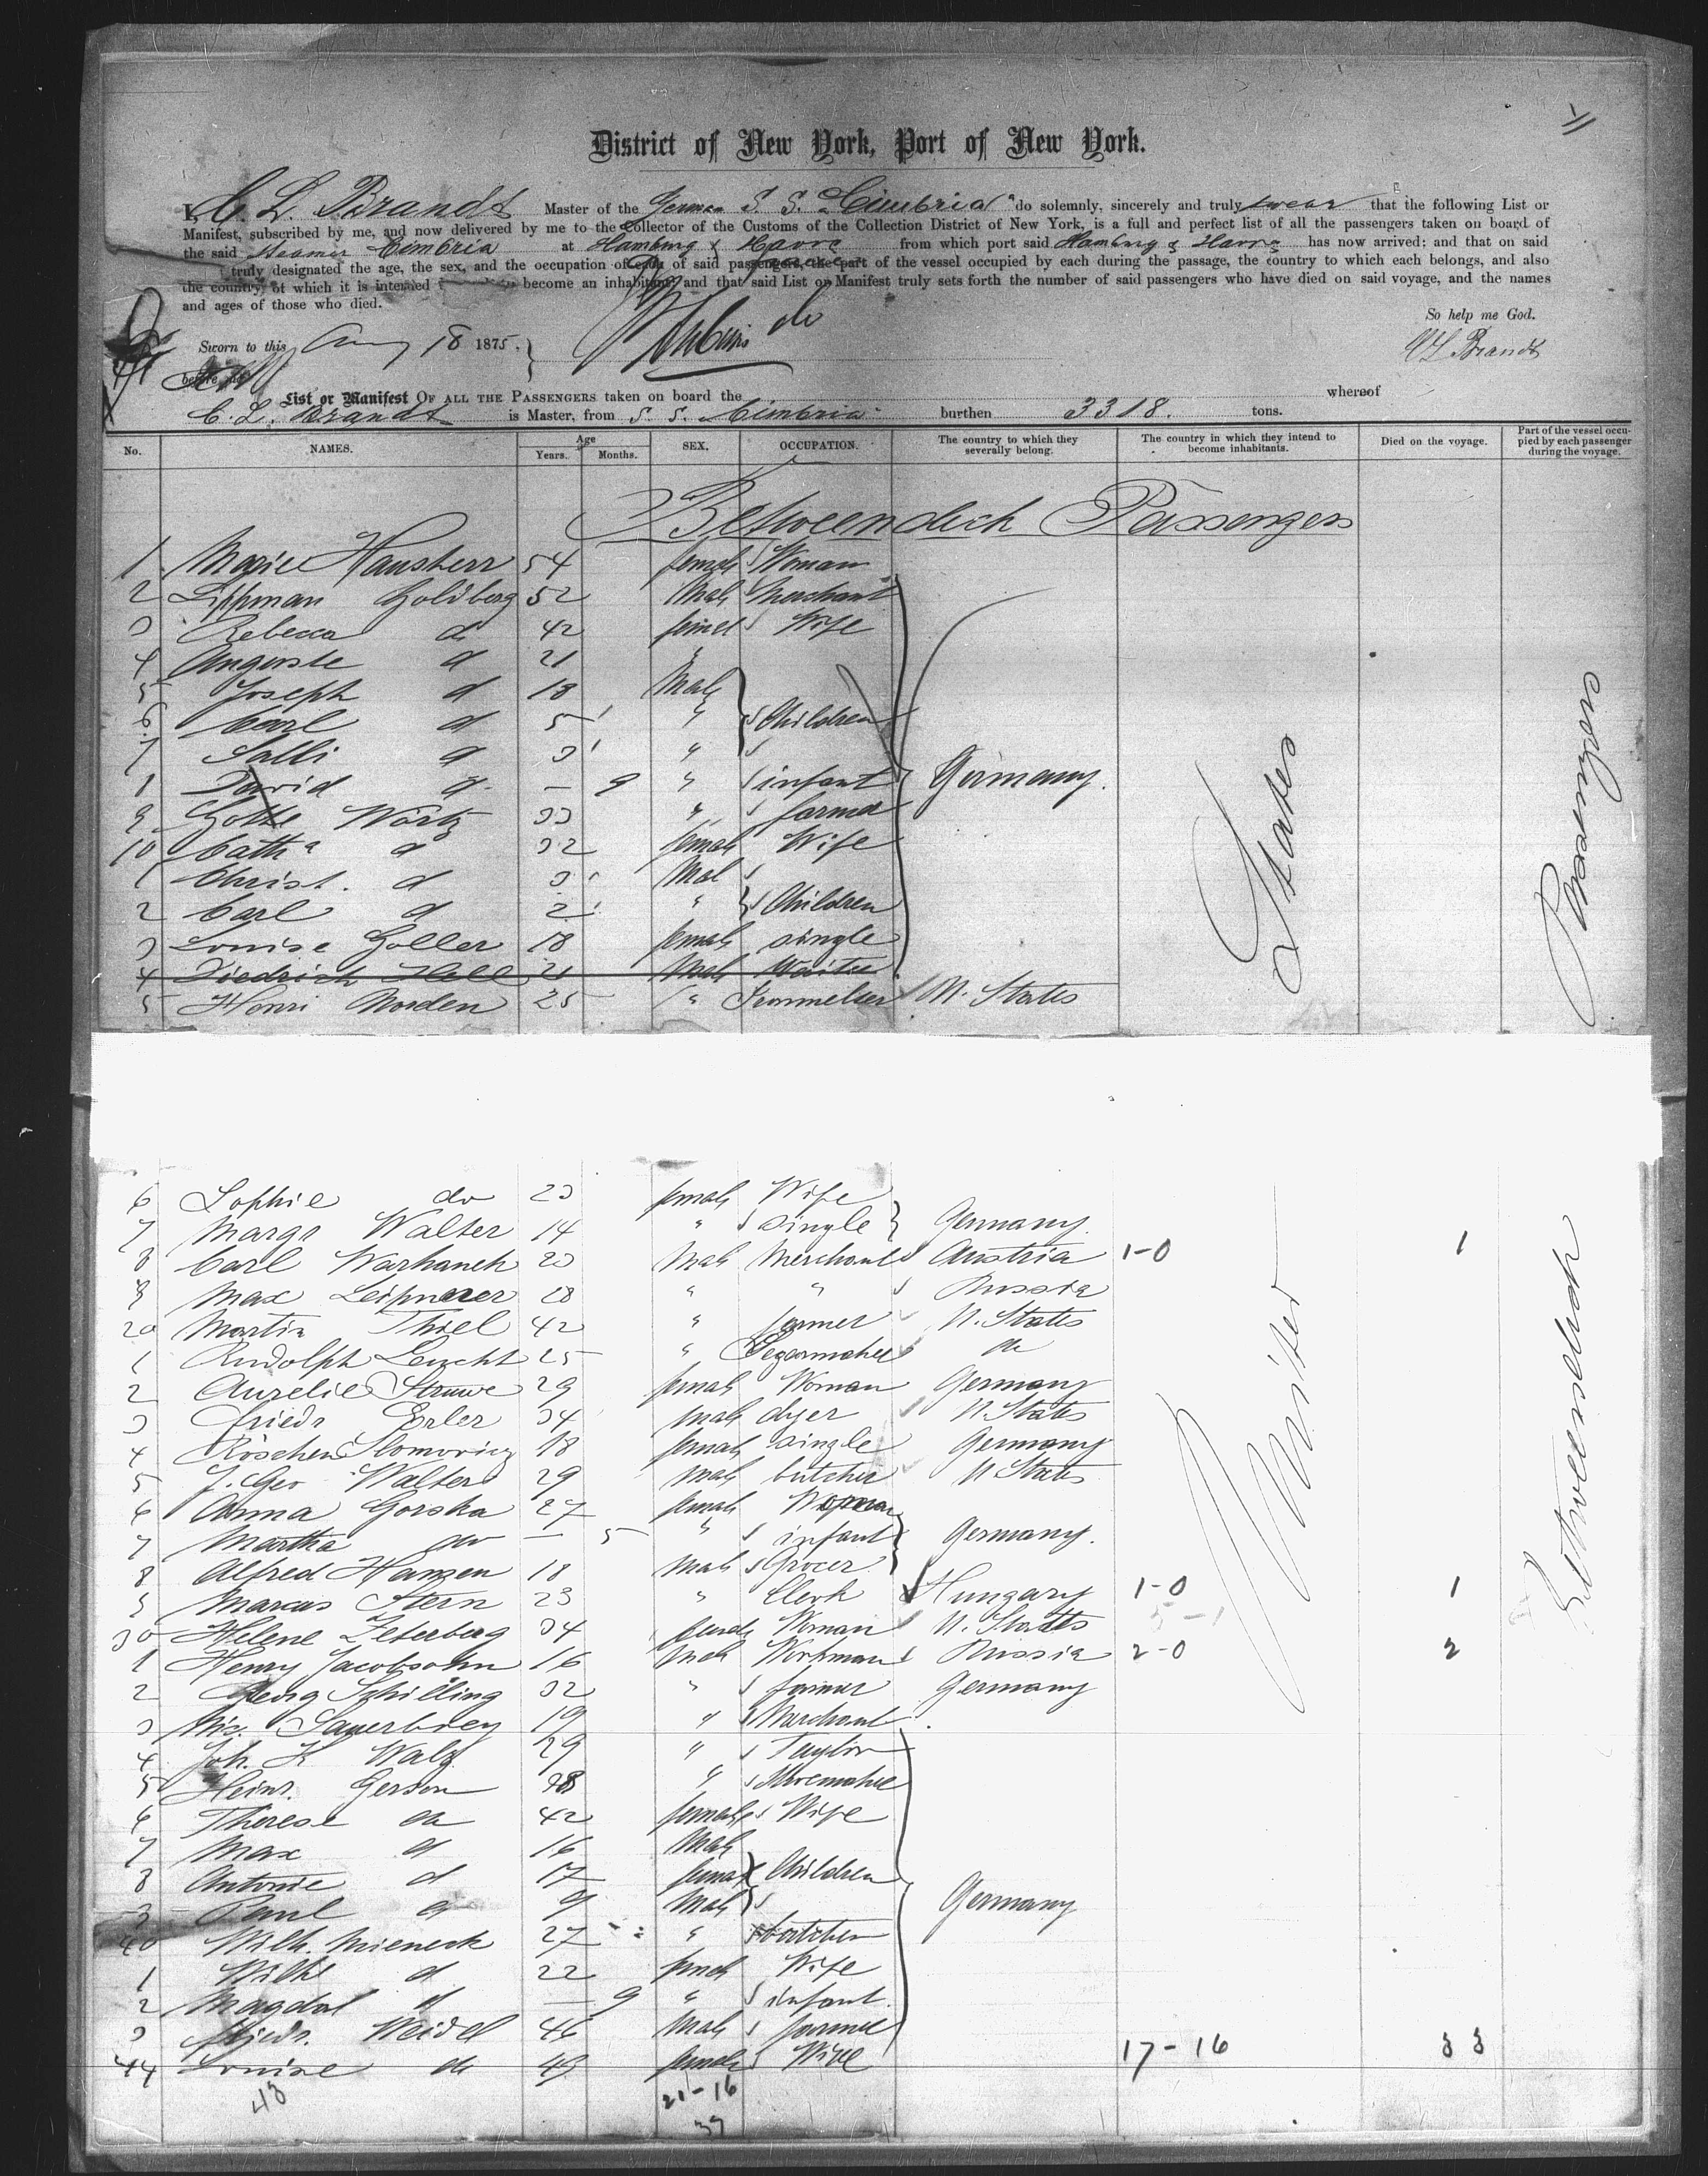 District of New York, Port of New York.
I, C. L. Brandt Master of the German S. S. "Cimbria" do solemnly, sincerely and truly swear that the following List or
Manifest, subscribed by me, and now delivered by me to the Collector of the Customs of the Collection District of New York, is a full and perfect list of all the passengers taken on board of
the said Steamer Cimbria at Hamburg & Havre from which port said Hamburg & Havre has now arrived; and that on said
truly designated the age, the sex, and the occupation of each of said passengers, the part of the vessel occupied by each during the passage, the country to which each belongs, and also
the country of which it is intended become an inhabitant and that said List or Manifest truly sets forth the number of said passengers who have died on said voyage, and the names
and ages of those who died.
So help me God.
Sworn to this Aug 18 1875.
C L Brandt
before me
List or Manifest OF ALL THE PASSENGERS taken on board the whereof
C. L. Brandt is Master, from S. S. Cimbria burthen 3318. tons.
No. NAMES. Age Years. Months. SEX. OCCUPATION. The country to which they severally belong. The country in which they intend to become inhabitants. Died on the voyage. Part of the vessel occupied by each passenger during the voyage.
Betweendeck Passengers
1 Marie Hausherr 54 female Woman
2 Lippman Goldberg 52 Male Merchant
3 Rebecca d 42 femel Wife
4 Auguste d 21 "
5 Joseph d 18 Male
6 Carl d 5 " Children
7 Salli d 3 "
8 David d - 9 " infant Germany.
9 Gottl Wortz 33 " farmer
10 Cath a d 32 female Wife
1 Christ. d 3 Mal
2 Carl d 2 " Children
3 Louise Goller 18 female single
4 Diedrich Hell 21 Male Waiter
5 Henri Norden 25 " U. States
States
Passengers
6 Sophie do 23 female Wife
7 Margr Walter 14 " single Germany
8 Carl Warhanek 20 Male Merchant Austria 1-0 1
9 Max 28 " " Russia
20 Martin Thiel 42 " farmer U. States
1 Rudolph Leucht 25 " Segarmaker do
2 Aurelie Struwe 29 female Woman Germany
3 Friedr Erler 34 male dyer U States
4 Röschen 18 female single Germany
5 J. Geo Walter 29 male butcher U States
6 Anna Gorska 27 female Woman
7 Martha do - 5 " infant Germany.
8 Alfred Hansen 18 male Grocer
9 Marcus Stern 23 " Clerk Hungary 1-0 1
30 Helene Zeterberg 34 female Woman U. States
1 Henry Jacobsohn 16 male Workman Russia 2-0 2
2 Georg Schilling 32 " farmer Germany
3 Nic. Sauerbrey 19 " Merchant
4 Joh. H Walz 29 " Taylor
5 Heinr. Gerson 38 " Shoemaker
6 Therese do 42 female Wife
7 Max d 16 Male
8 Antonie d 17 female Children
9 Paul d 9 Male Germany
40 Wilh. Mieneck 27 "
1 Wilhe d 22 femal Wife
2 Magdal d - 9 " infant
3 Friedr. Weidel 46 Male farmer
44 Louise do 49 female Wife 17-16 33
43 21-16
37
United
Betweendeck